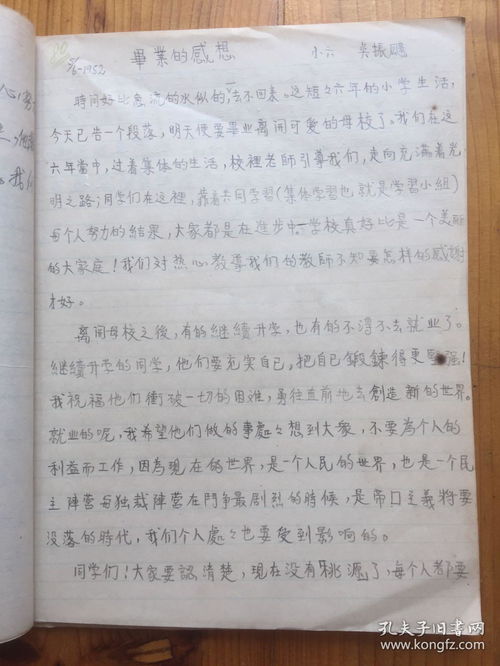 5/6-1952
畢業的感想 小六 吴振颺
時间好比急流的水似的,一去不回来。这短々六年的小学生活,
今天已告一个段落,明天便要畢业离開可爱的母校了。我们在这
六年當中,过着集体的生活,校裡老師引導我们,走向充滿着光
明之路;同学们在这裡,靠着共同学習(集体学習也就是学習小組)
每个人努力的結果,大家都是在進步中—学校真好比是一个美丽
的大家庭!我们对热心教導我们的教師不知要怎样的感謝
才好。
离開母校之後,有的继續升学,也有的不得不去就业了。
继續升学的同学,他们要充实自己,把自己鍛鍊得更堅强!
我祝福他们衝破一切的困难,勇往直前地去創造新的世界。
就业的呢,我希望他们做的事處々想到大衆,不要為个人的
利益而工作,因為現在的世界,是一个人民的世界,也是一个民
主陣营与独裁陣营在鬥争最剧烈的時候,是帝口主義将要
没落的時代,我们个人處々也要受到影响的。
同学们!大家要認清楚,現在没有桃源了,每个人都要
孔夫子旧书网
www.kongfz.com